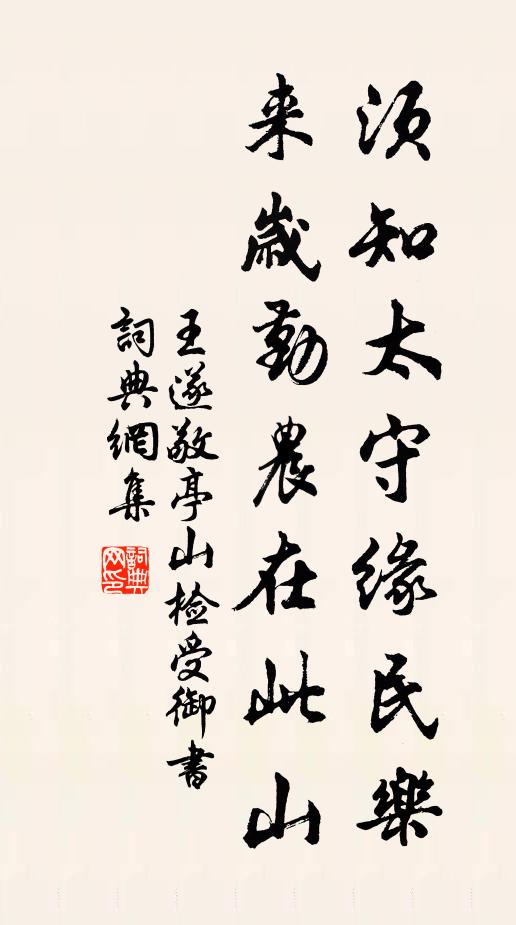 须知太守缘民樂
来歳勤農在此山
王遂敬亭山检受御書
詞典網集
詞典网印